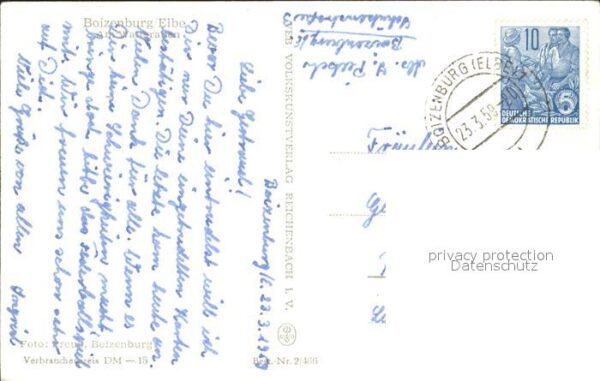 Boizenburg Elbe
Am Wallgraben
Boizenburg/E. 23.3.1959
Liebe Gertraud!
Bevor Du hier eintrudelst will ich
Dir nur Deine eingetrudelten Karten
bestätigen. Die letzte kam heute an.
Vielen Dank für alles. Wenn es
Dir keine Schwierigkeiten macht
bringe doch bitte das
mit. Wir freuen uns schon sehr
auf Dich.
Viele Grüße von allen Ingrid
Foto: Freud, Boizenburg
Verbraucherpreis DM —.15
VEB VOLKSKUNSTVERLAG REICHENBACH I. V.
Best.-Nr. 2/466
Abs. I.
Boizenburg/E
10
5
DEUTSCHE
DEMOKRATISCHE REPUBLIK
BOIZENBURG (ELBE)
23.3.59
privacy protection
Datenschutz